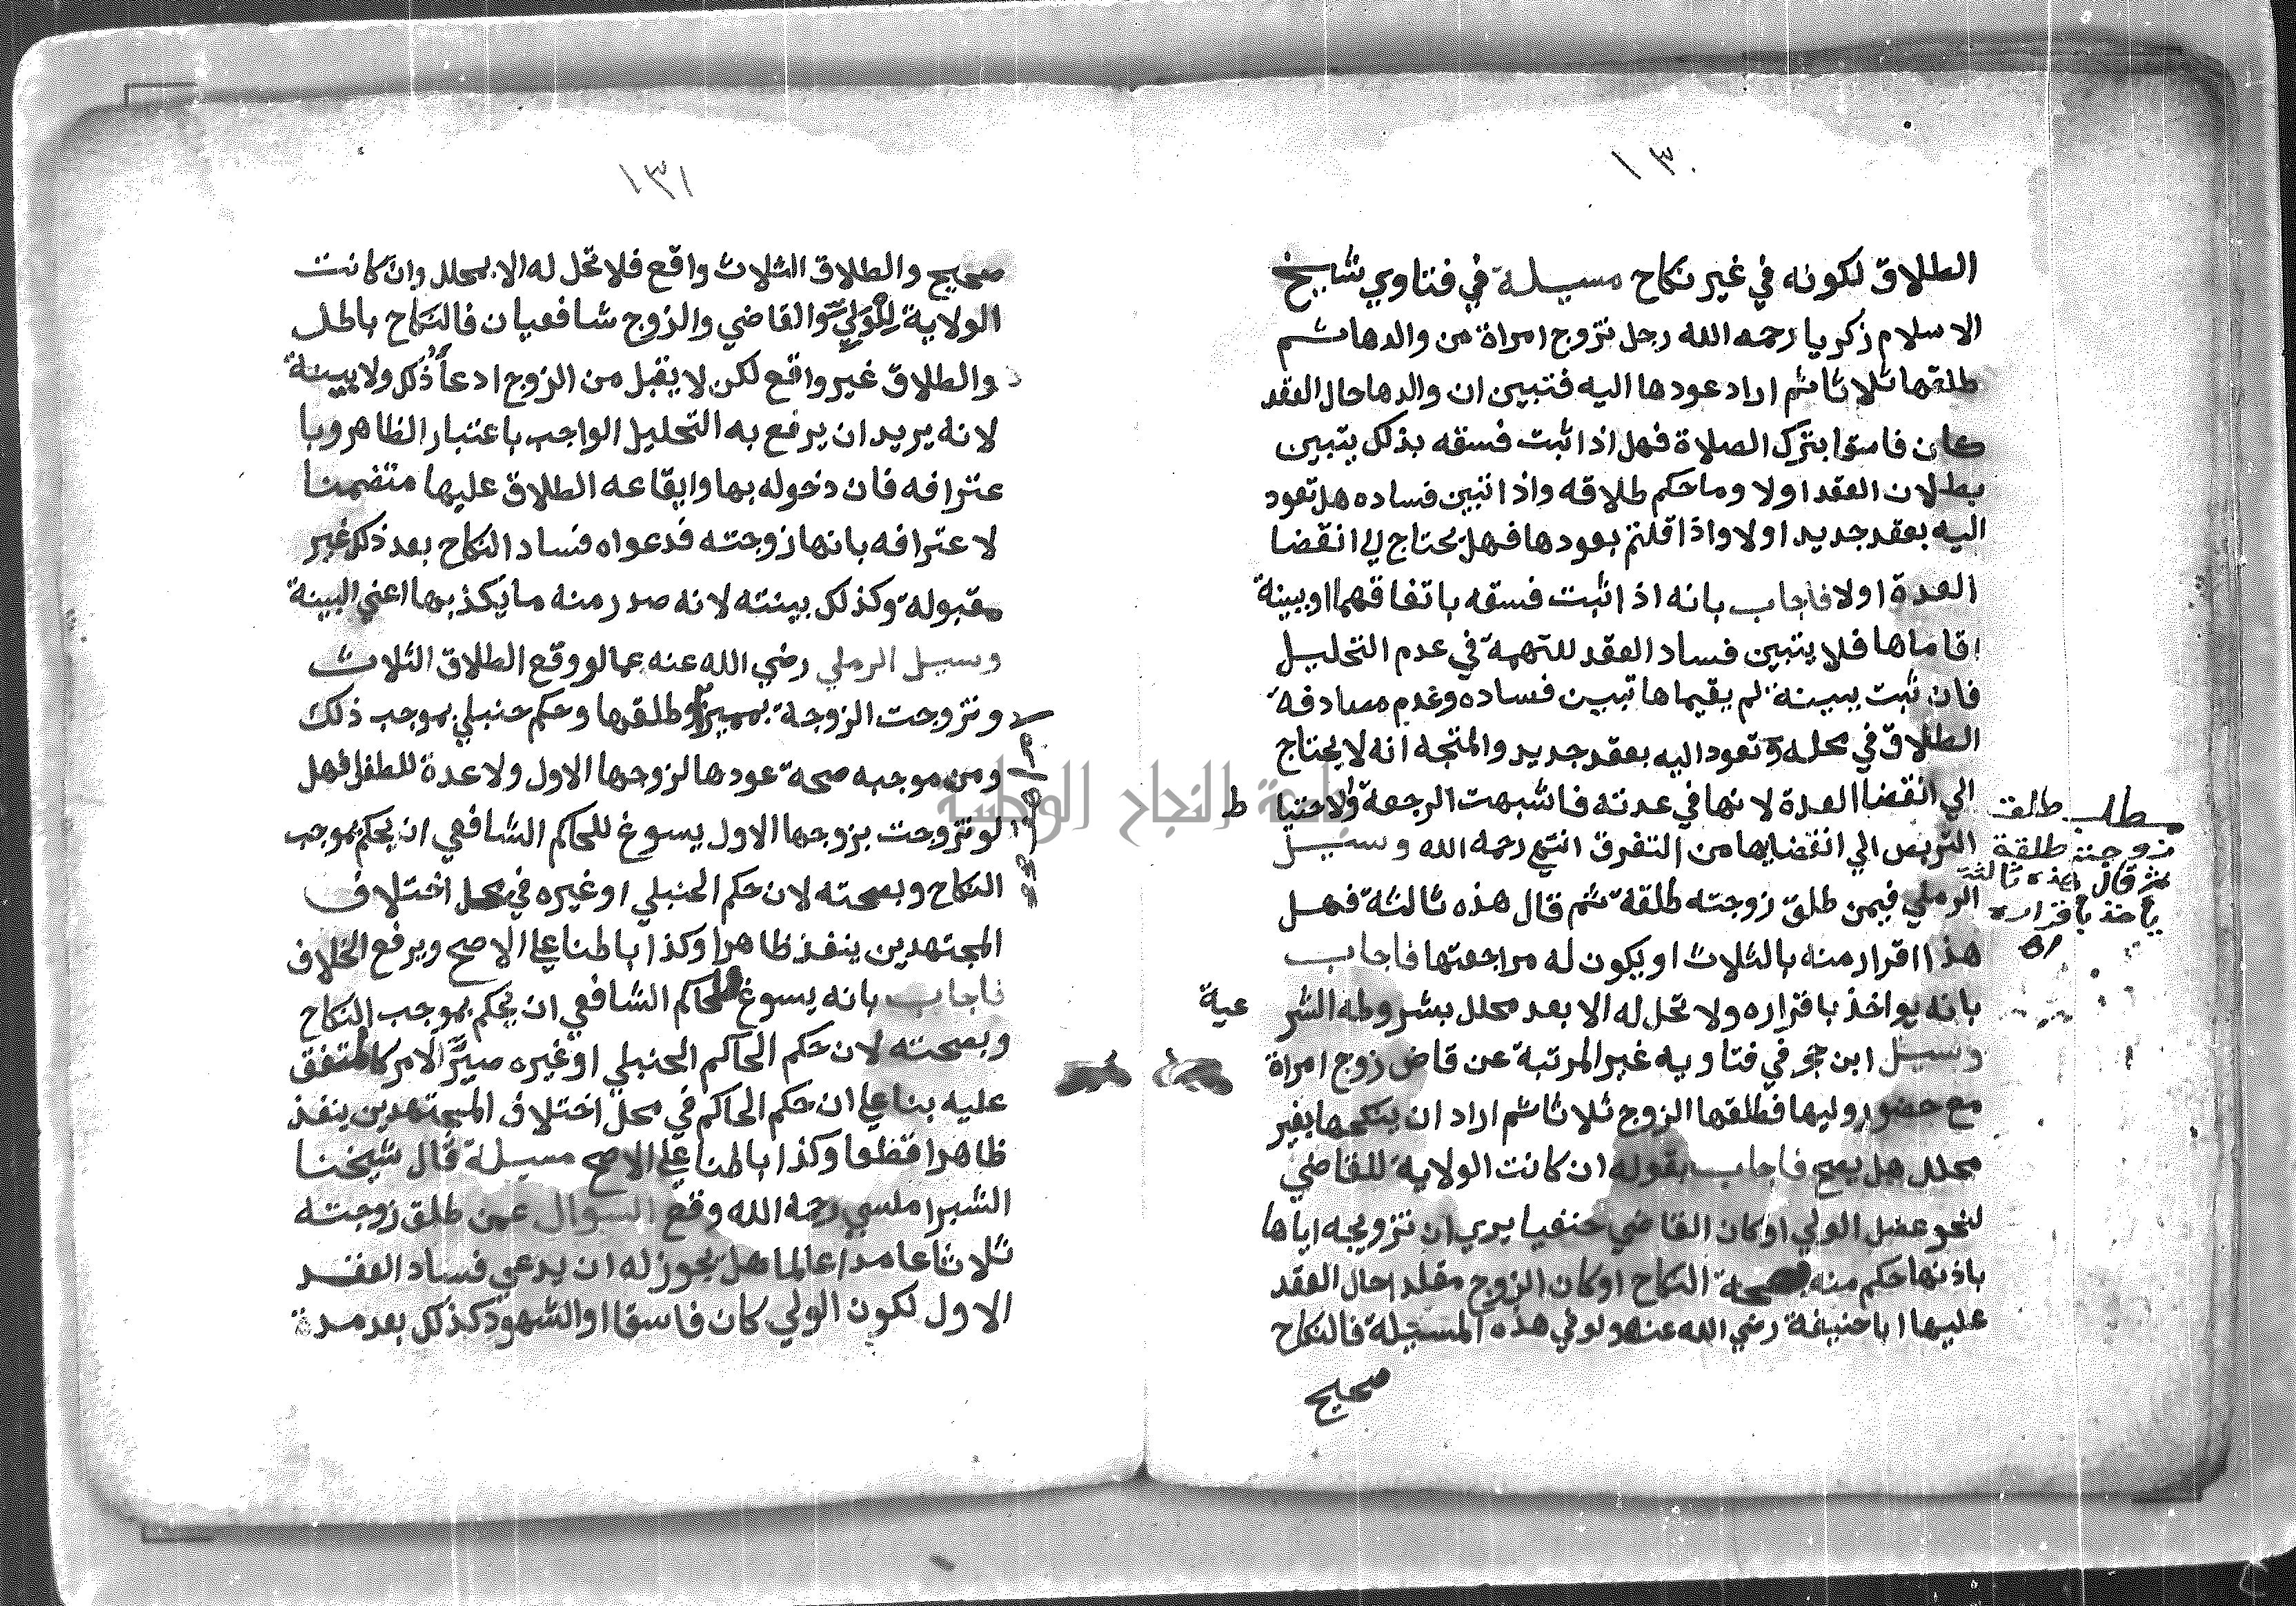 ١٣٠
الطلاق لكونه في غير نكاح مسيلة في فتاوي شيخ
الاسلام زكريا رحمه الله رجل تزوج امراة من والدها ثم
طلقها ثلاثا ثم اراد عودها اليه فتبين ان والدها حال العقد
كان فاسقا بترك الصلاة فهل اذا ثبت فسقه بذلك يتبين
بطلان العقد اولا وما حكم طلاقه واذا تبين فساده هل تعود
اليه بعقد جديد اولا واذا قلتم بعودها فهل يحتاج الي انقضا
العدة اولا فاجاب بانه اذا ثبت فسقه باتفاقهما او بينة
اقاماها فلا يتبين فساد العقد للتهمة في عدم التحليل
فان ثبت ببينة لم يقيماها تبين فساده وعدم مصادفة
الطلاق في محله وتعود اليه بعقد جديد والمتجه انه لا يحتاج
الي انقضا العدة لانها في عدته فاشبهت الرجعة والاحتيا ط
التربص الي انقضايها من التفرق انتهي رحمه الله وسيل
الرملي فيمن طلق زوجته طلقة ثم قال هذه ثالثة فهل
هذا اقرار منه بالثلاث او يكون له مراجعتها فاجاب
بانه يواخذ باقراره ولا تحل له الا بعد محلل بشروطه الشر عية
وسيل ابن حجر في فتاويه غير المرتبة عن قاض زوج امراة
مع حضور وليها فطلقها الزوج ثلاثا ثم اراد ان ينكحها بغير
محلل هل يصح فاجاب بقوله ان كانت الولاية للقاضي
لنحو عضل الولي او كان القاضي حنفيا يري ان تزويجه اياها
باذنها حكم منه بصحة النكاح او كان الزوج مقلدا حال العقد
عليها ابا حنيفة رضي الله عنه ولو في هذه المسيلة فالنكاح
صحيح
مطلب طلق
زوجته طلقة
ثم قال هذه ثالثة
ياخذ باقراره
١٣١
صحيح والطلاق الثلاث واقع فلا تحل له الا بمحلل وان كانت
الولاية للولي والقاضي والزوج شافعيان فالنكاح باطل
والطلاق غير واقع لكن لا يقبل من الزوج ادعا ذلك ولا ببينة
لانه يريد ان يرفع به التحليل الواجب باعتبار الظاهر وبا
عترافه فان دخوله بها وايقاعه الطلاق عليها متضمنا
لاعترافه بانها زوجته فدعواه فساد النكاح بعد ذلك غير
مقبولة وكذلك بينته لانه صدر منه ما يكذبها اعني البينة
وسيل الرملي رضي الله عنه عما لو وقع الطلاق الثلاث
وتزوجت الزوجة بمميز وطلقها وحكم حنبلي بموجب ذلك
ومن موجبه صحة عودها لزوجها الاول ولا عدة للطفل فهل
لو تزوجت بزوجها الاول يسوغ للحاكم الشافعي ان يحكم بموجب
النكاح وبصحته لان حكم الحنبلي او غيره في محل اختلاف
المجتهدين ينفذ ظاهرا وكذا باطنا علي الاصح ويرفع الخلاف
فاجاب بانه يسوغ للحاكم الشافعي ان يحكم بموجب النكاح
وبصحته لان حكم الحاكم الحنبلي او غيره صيَّر الامر كالمتفق
عليه بنا علي ان حكم الحاكم في محل اختلاف المجتهدين ينفذ
ظاهرا قطعا وكذا باطنا علي الاصح مسيلة قال شيخنا
الشبراملسي رحمه الله وقع السوال عمن طلق زوجته
ثلاثا عامدا عالما هل يجوز له ان يدعي فساد العقد
الاول لكون الولي كان فاسقا او الشهود كذلك بعد مدة
جامعة النجاح الوطنية